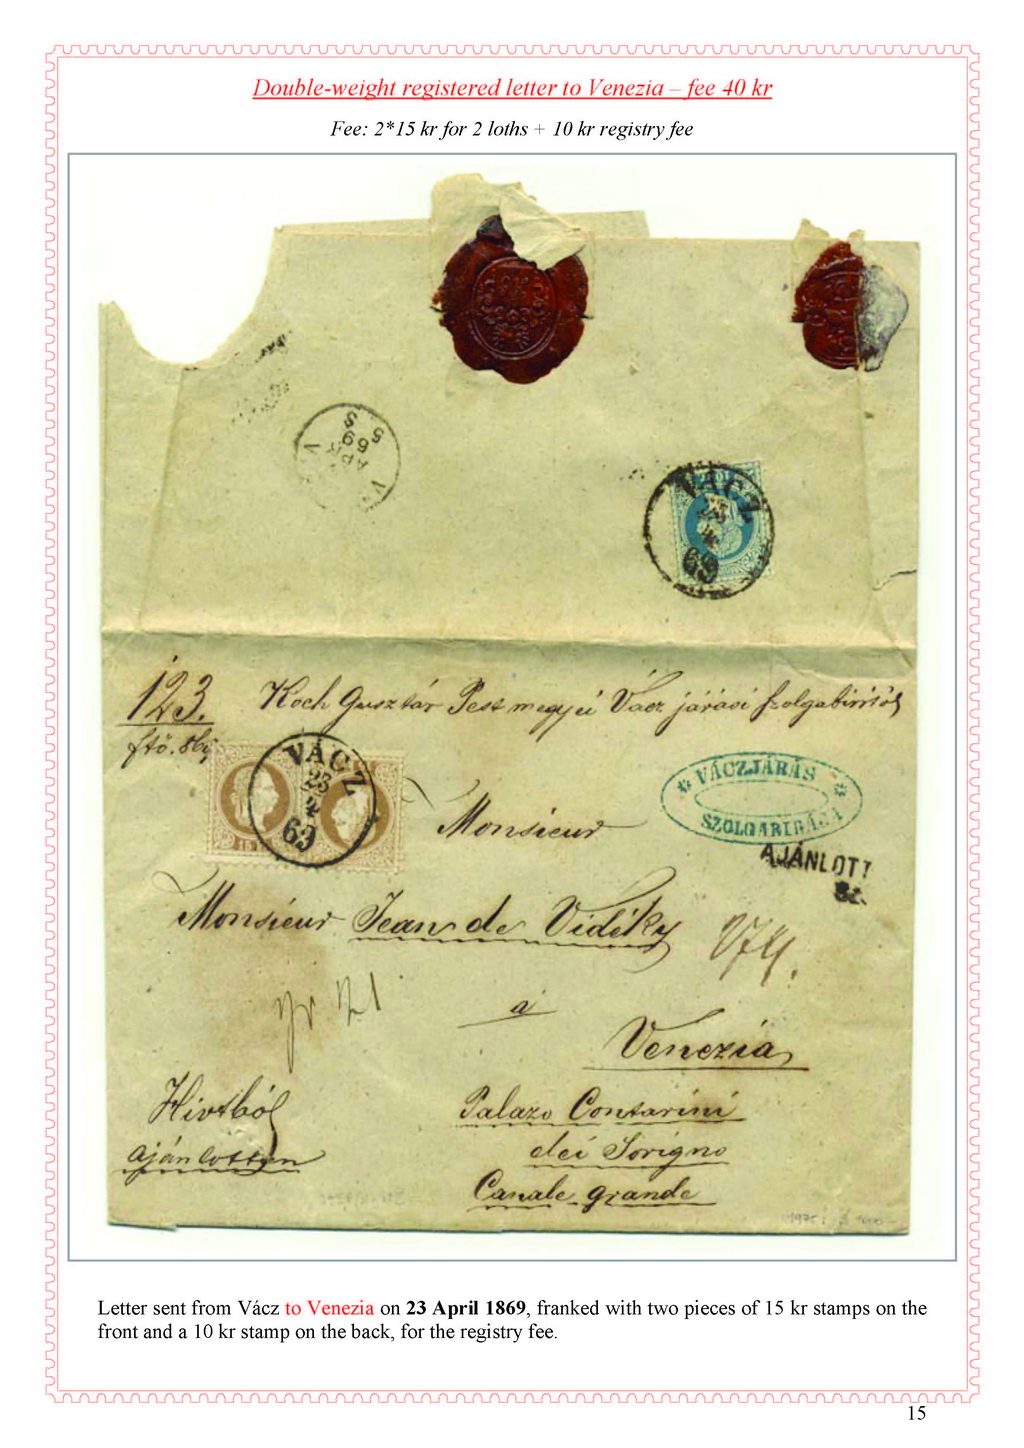 Double-weight registered letter to Venezia – fee 40 kr
Fee: 2*15 kr for 2 loths + 10 kr registry fee
69
VÁCZ
23
4
69
123.
Koch Gusztáv Pest megyei Vácz járási szolgabírótól
VÁCZ
23
4
69
VÁCZJÁRÁS
SZOLGABIRÁJA
Monsieur
AJÁNLOTT
Sz.
Monsieur Jean de Vidéky
à
Venezia,
Hivtból
ajánlottan
Palazo Contarini
dei Sorigno
Canale grande
Letter sent from Vácz to Venezia on 23 April 1869, franked with two pieces of 15 kr stamps on the
front and a 10 kr stamp on the back, for the registry fee.
15